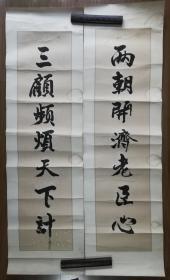 兩朝開濟老臣心
三顧頻煩天下計